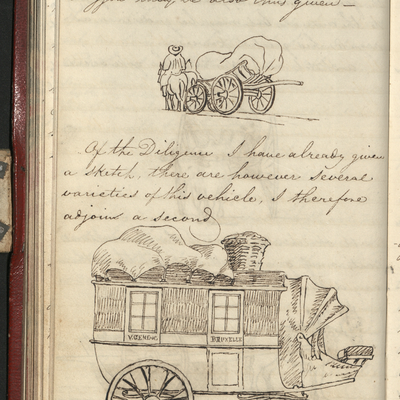 may be also thus given—
Of the Diligence I have already given
a sketch, there are however several
varieties of this vehicle, I therefore
adjoin a second
BRUXELLE